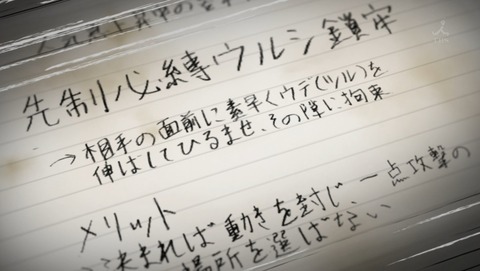 先制必縛ウルシ鎖牢
→相手の面前に素早くウデ(ツル)を
伸ばしてひるませ、その隙に拘束
メリット
決まれば動きを封じ一点攻撃の
場所を選ばない